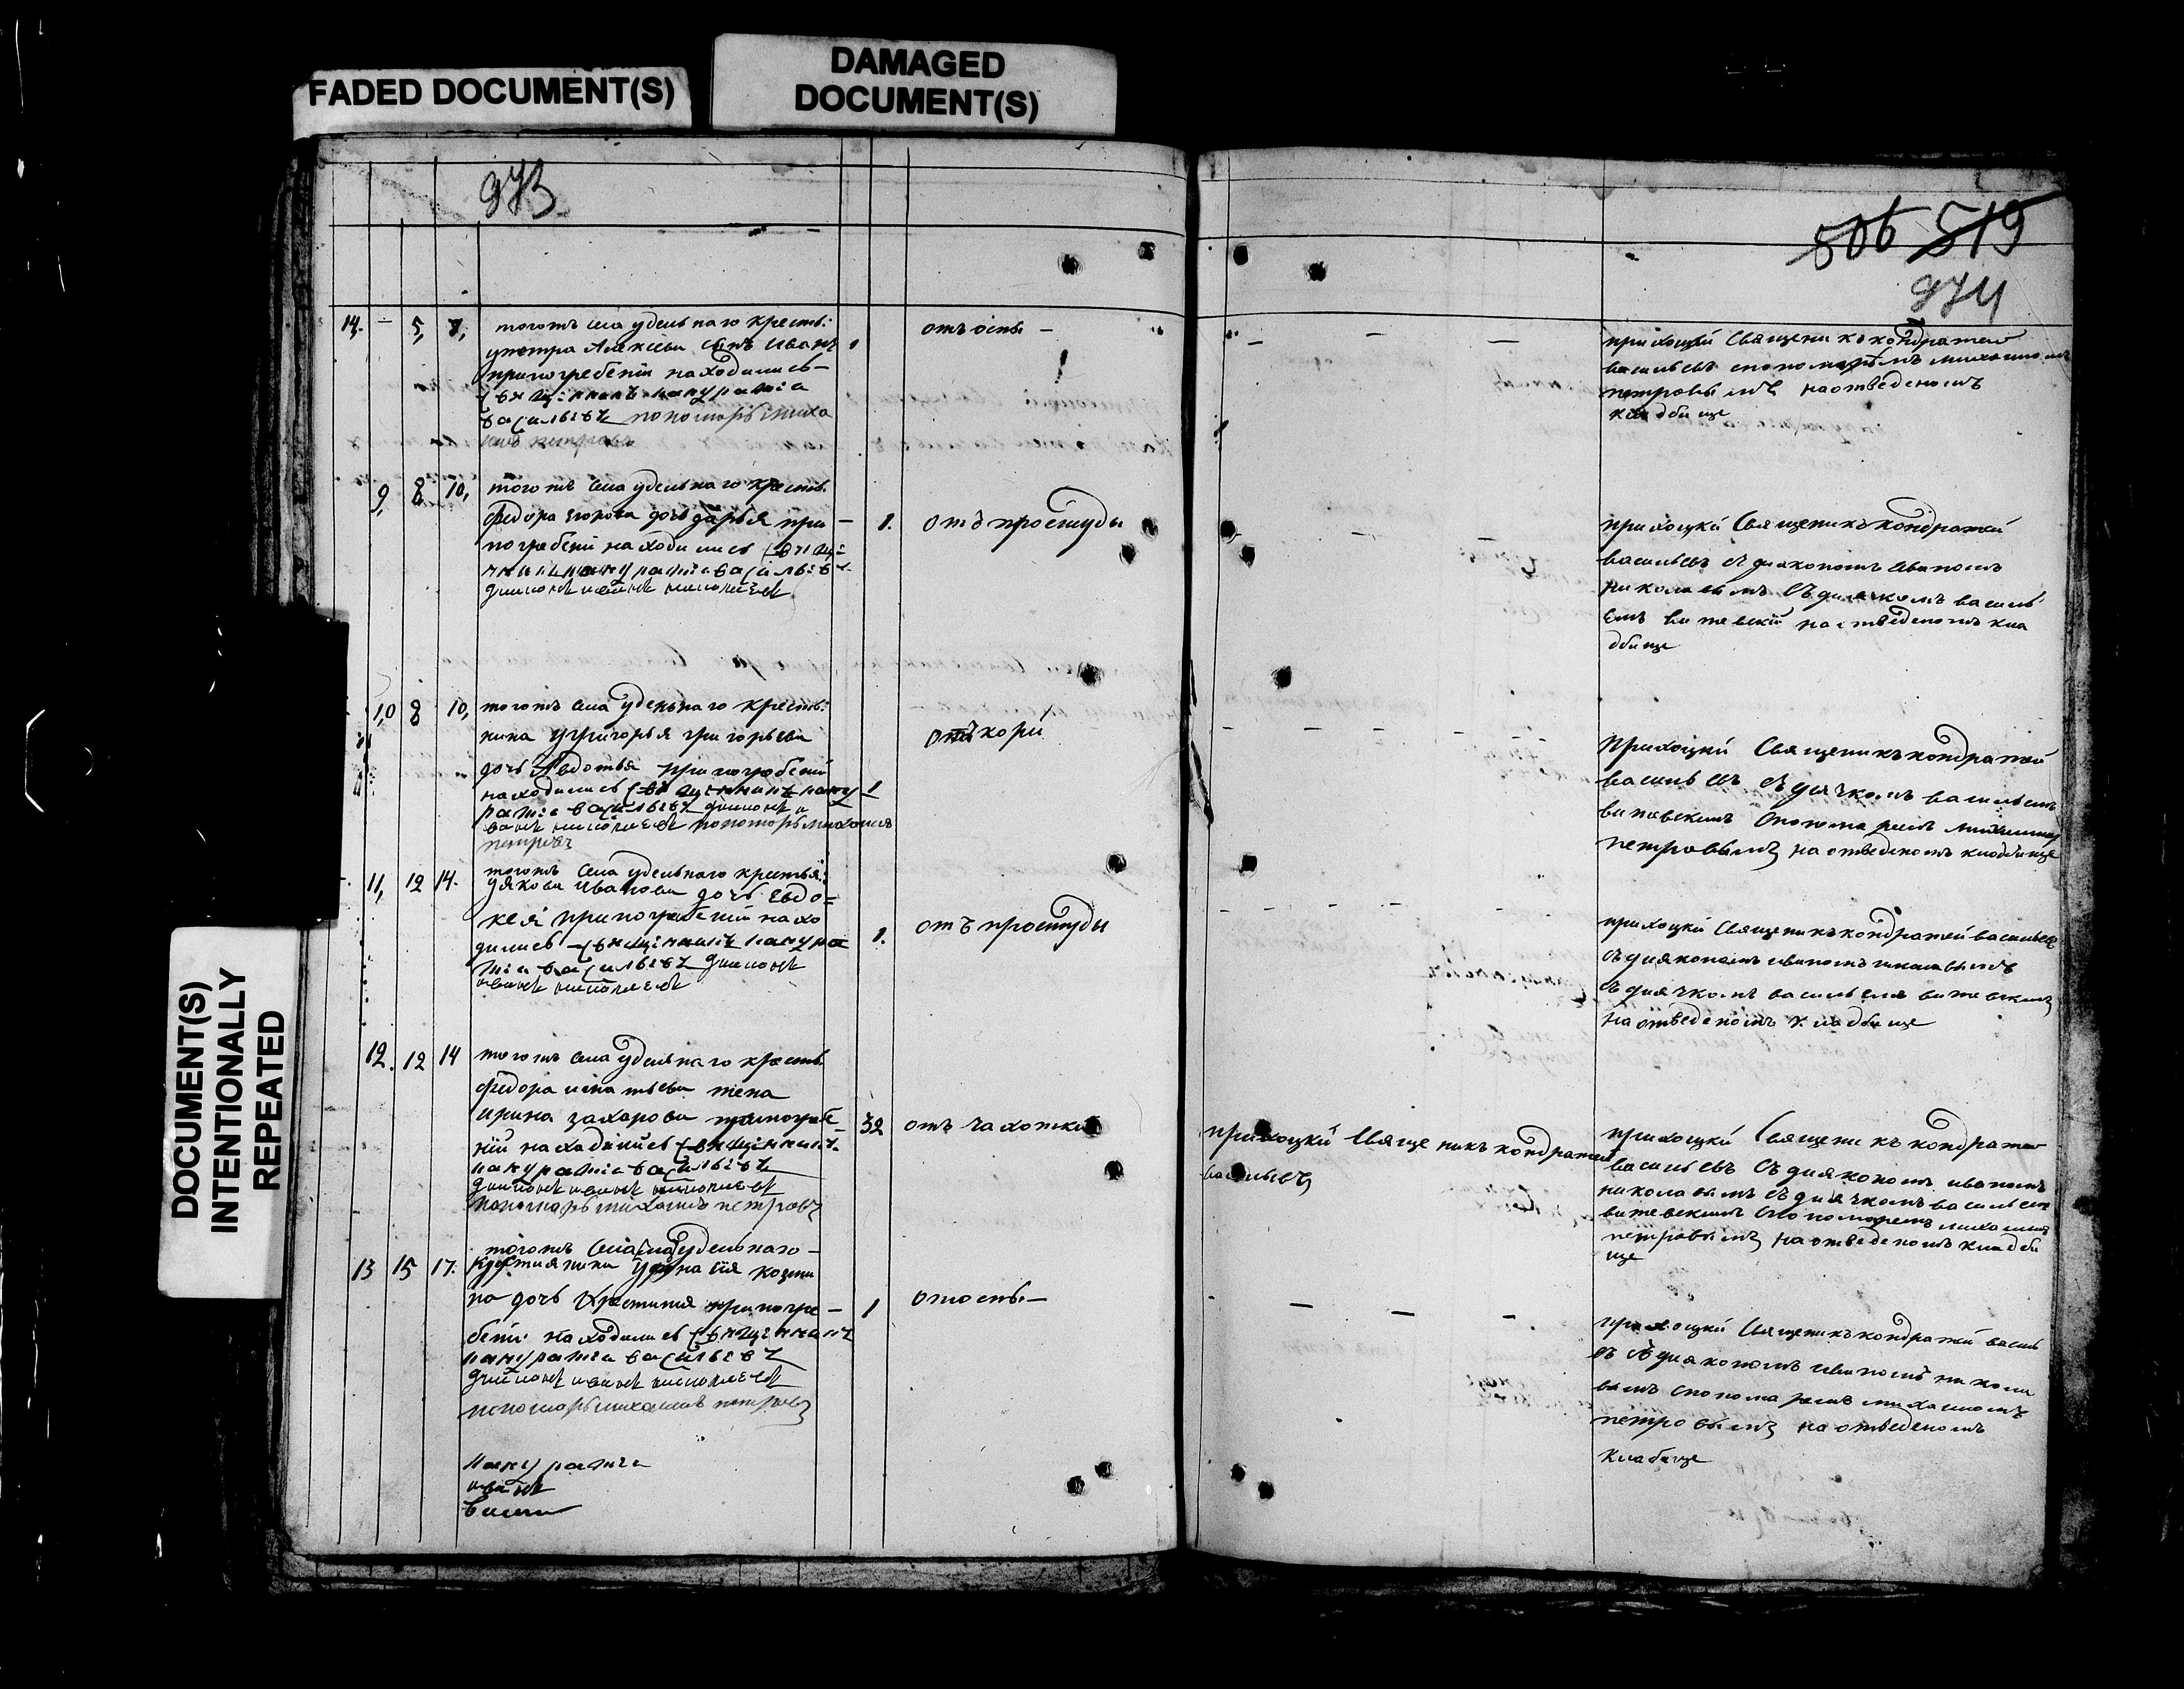 FADED DOCUMENT(S)
DAMAGED
DOCUMENT(S)
DOCUMENT(S)
INTENTIONALLY
REPEATED
973
14. — 5, 7, тогожъ села удельнаго крестья:
упетра Алексева сынъ Иванъ 1
припогребенiи находились —
священникъ кондратiй
васильевъ пономарь михаилъ петровъ
отъ оспы —
9, 8 10, тогожъ села удельнаго крестья.
федора дочь дарья при — 1. отъ простуды
погребенiи находились священникъ
кондратiй васильевъ
дiаконъ иванъ николаевъ
10 8 10, тогожъ села удельнаго крестья:
нина угригорья григорьева
отъ кори
дочь Авдотья припогребенiи
находились священникъ кондратiй 1
васильевъ дiаконъ иванъ
николаевъ пономарь михаилъ
петровъ
11, 12 14. тогожъ села удельнаго крестья:
уякова Иванова дочь Евдо=
кея припогребенiи нахо
дились священникъ кондра 1. отъ простуды
тiй васильевъ дiаконъ
иванъ николаевъ
12. 12 14 тогожъ села удельнаго крестья.
федора игнатьева жена
ирина захарова припогребе
нiи находились священникъ 32 отъ чахотки
кондратiй васильевъ
дiаконъ иванъ николаевъ
пономарь михаилъ петровъ
13 15 17. тогожъ села удельнаго —
крестиянина козми
на дочь Христиния припогре — 1 отъ оспы —
бенiи находились священникъ
кондратiй васильевъ
дiаконъ иванъ николаевъ
пономарь михаилъ петровъ
кондратiй
иванъ
506 519
974
приходцкiй Священикъ кондратей
васильевъ спономаремъ михаиломъ
петровымъ наотведеномъ
кладбище
приходцкiй Священикъ кондратей
васильевъ съ диякономъ Иваномъ
николаевымъ съ диячкомъ василь
емъ витевскимъ наотведеномъ кла
дбище
приходцкiй Священикъ кондратей
васильевъ съ дiячкомъ васильемъ
витевскимъ спономаремъ михаиломъ
петровымъ на отведеномъ кладбище
приходцкiй Священикъ кондратей васильевъ
съ дияконамъ иваномъ николаевымъ
съ диячкомъ васильемъ витевскимъ
на отведеномъ кладбище
приходцкiй Священикъ кондратей
васильевъ
приходцкiй Священикъ кондратей
васильевъ съ диякономъ иваномъ
николаевымъ съ диячкомъ васильемъ
витевскимъ спономаремъ михаиломъ
петровымъ наотведеномъ кладби
ще
приходцкiй Священикъ кондратей василь
евъ съ дияконамъ иваномъ никола
вымъ спономаремъ михаиломъ
петровымъ наотведеномъ
клабище